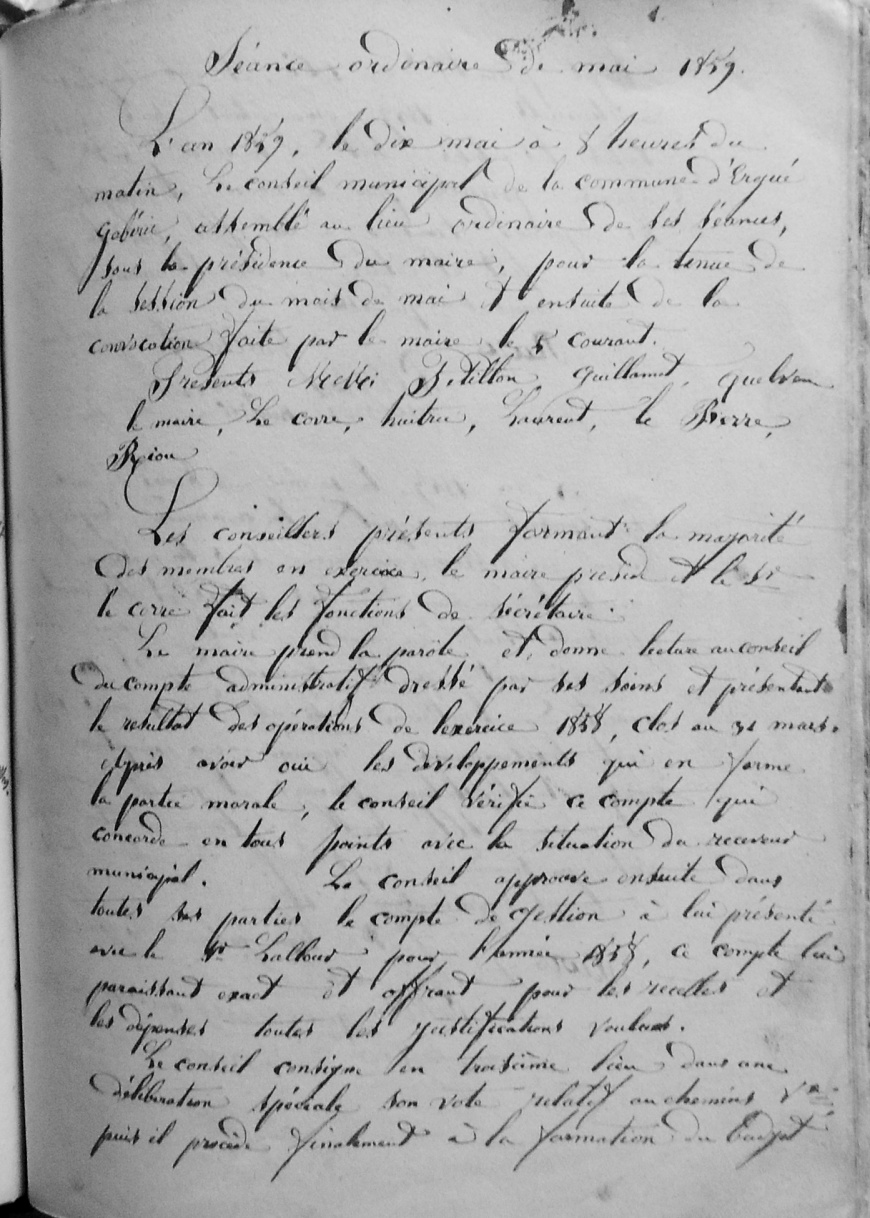 Séance ordinaire de mai 1859.
L'an 1859, le dix mai à 8 heures du
matin, Le conseil municipal de la commune d'Ergué
Gabéric, assemblé au lieu ordinaire de ses séances,
sous la présidence du maire, pour la tenue de
la session du mois de mai et ensuite de la
convocation faite par le maire le 5 courant.
Présents MM Pétillon, Guillamet, quelven
le maire, Le corre, huitric, Laurent, le Berre,
Riou
Les conseillers présents formant la majorité
des membres en exercice, le maire preside et le Sr
le corre fait les fonctions de sécrétaire.
Le maire prend la parole et donne lecture au conseil
du compte administratif dressé par ses soins et présentant
le resultat des opérations de l'exercice 1858, clos au 31 mars.
Après avoir oui les développements qui en forme
la partie morale, le conseil vérifie ce compte qui
concorde en tous points avec la situation du receveur
municipal. Le conseil approuve ensuite dans
toutes ses parties le compte de gestion à lui présenté
le Sr Lallour pour l'année 1858, ce compte lui
paraissant exact et offrant pour les recettes et
les dépenses toutes les justifications voulues.
Le conseil consigne en troisième lieu dans une
déliberation spéciale son vote relatif au chemins Vaux
puis il procède finalement à la formation du Budget